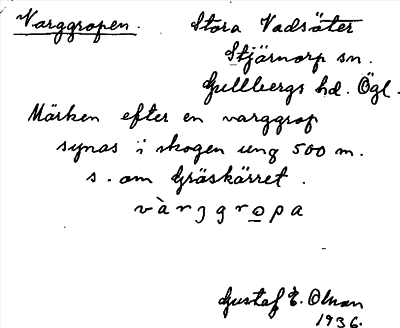 Varggropen. Stora Vadsäter
Stjärnorp sn.
Gullbergs hd. Ögl.
Märken efter en varggrop
synas i skogen ung 500 m.
s. om Gräskärret.
vàrgg ro̲pa
Gustaf E. Olson
1936.